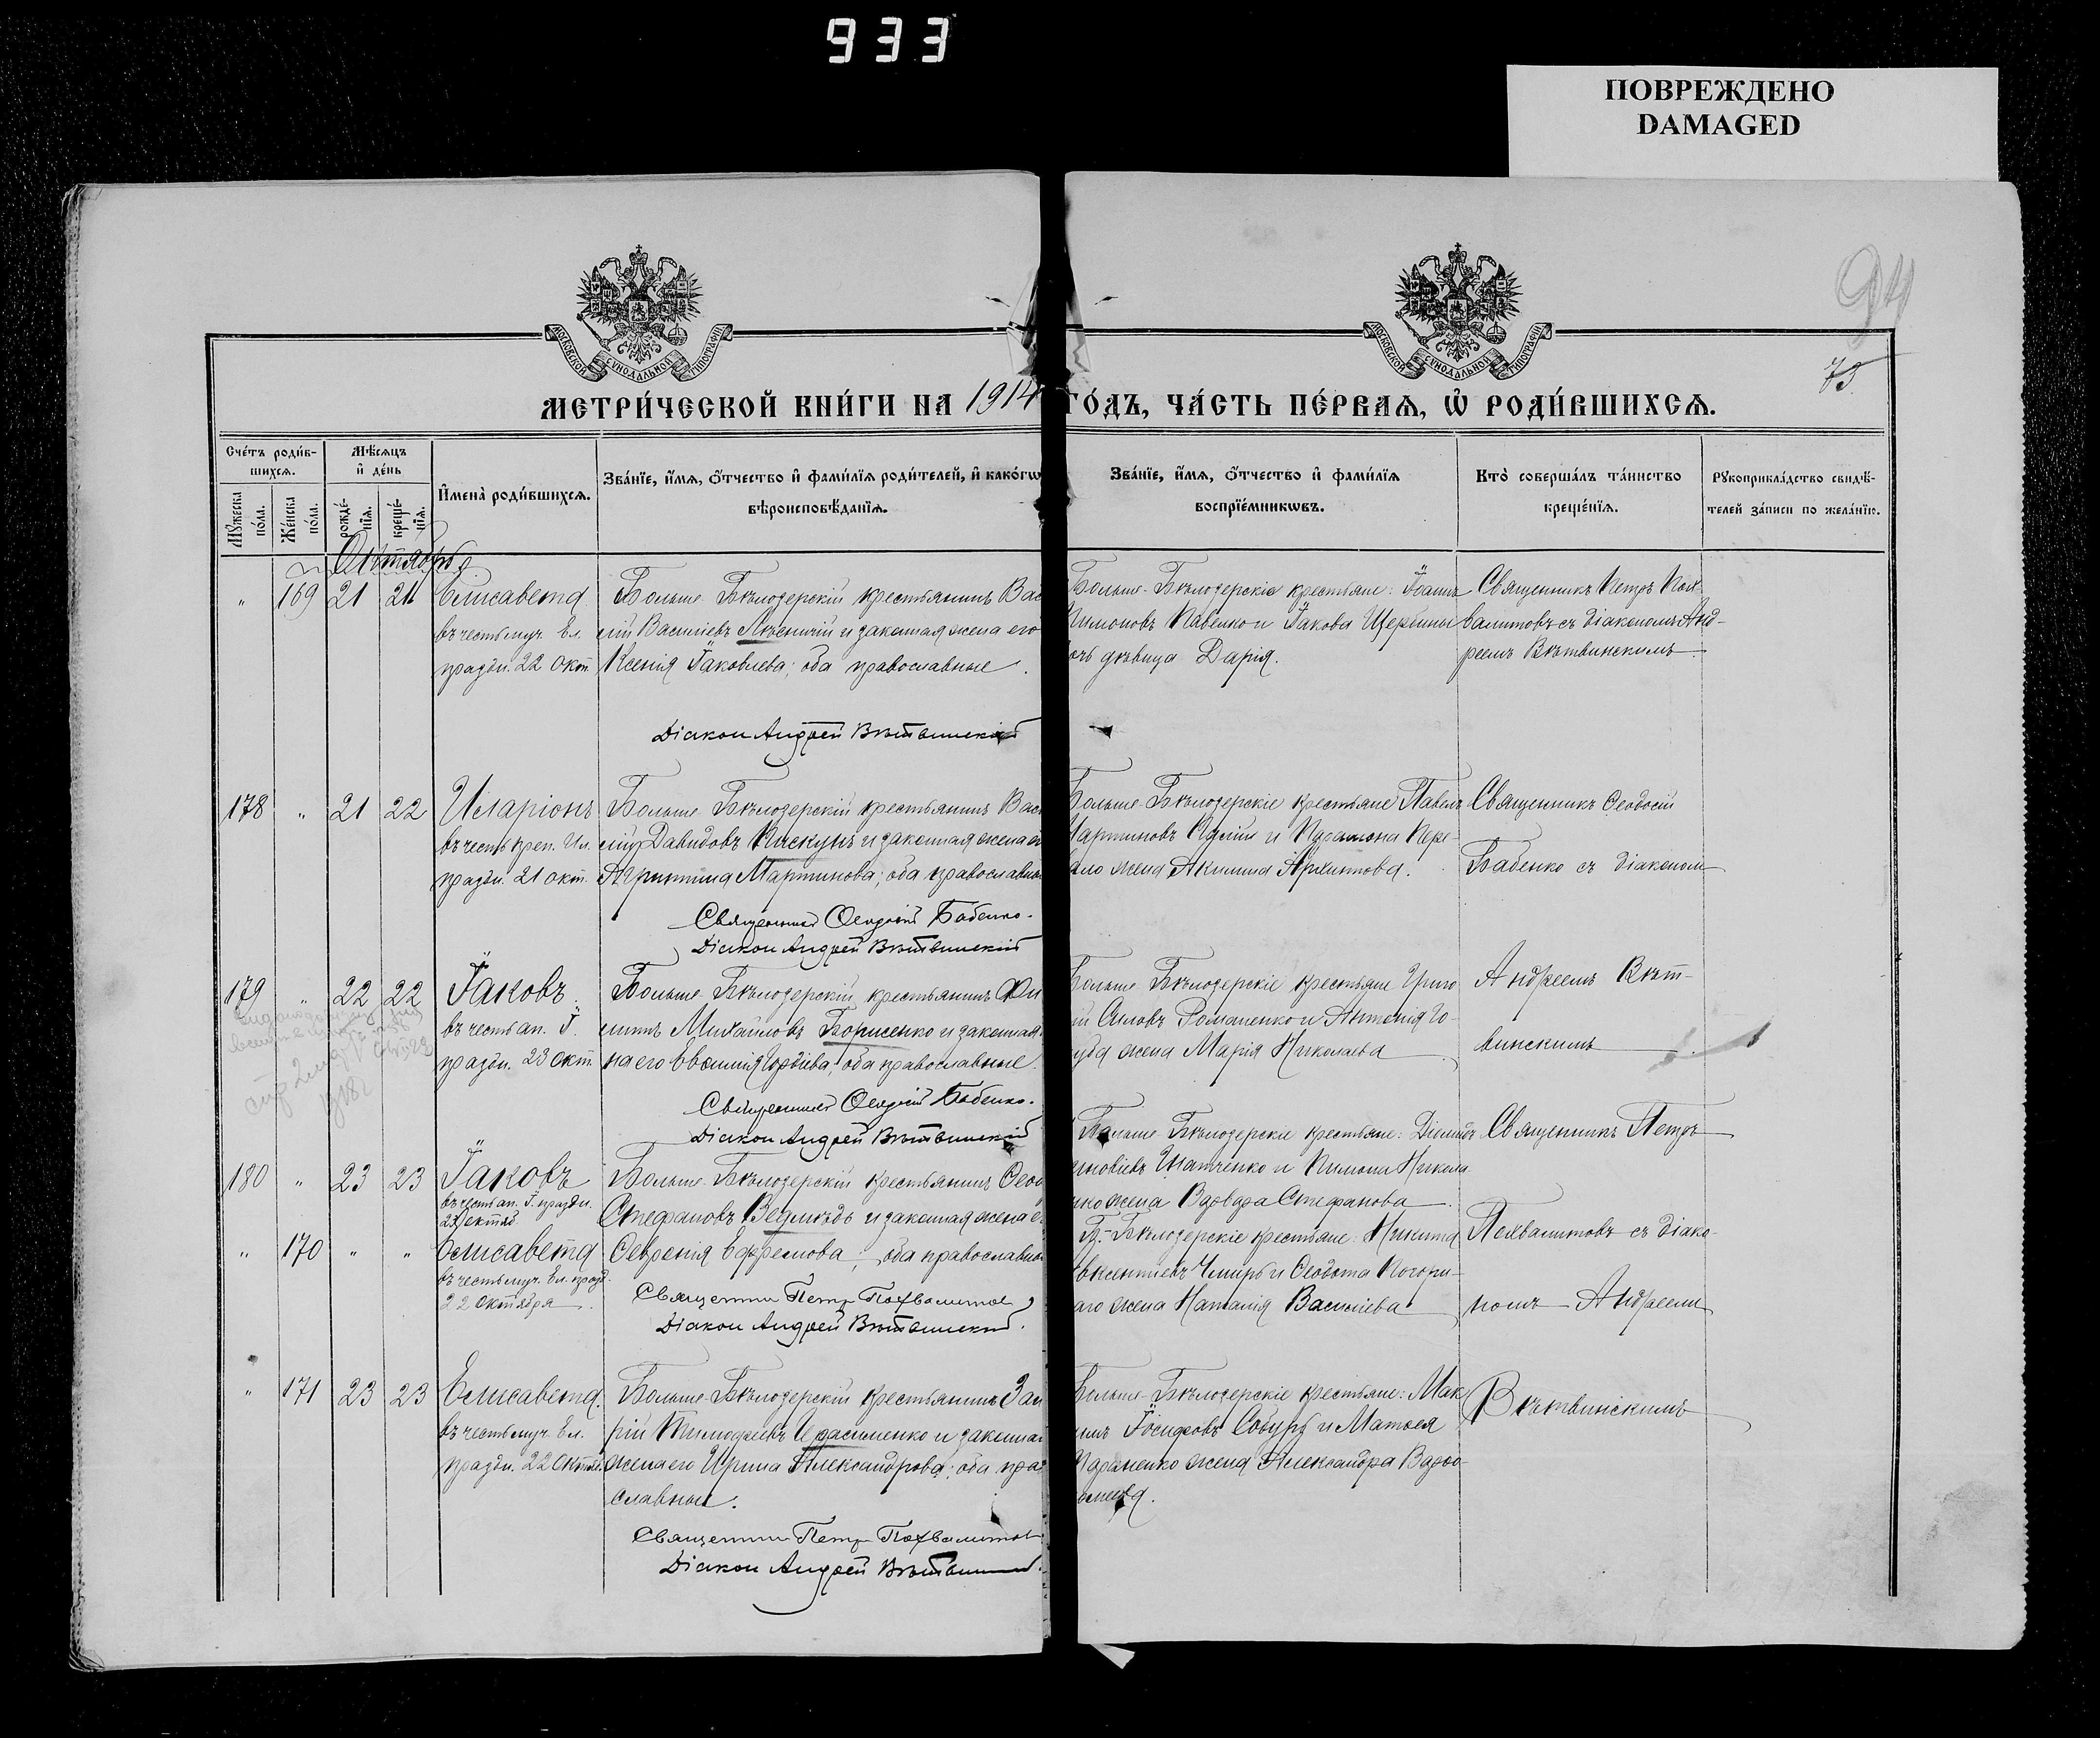 933
ПОВРЕЖДЕНО
DAMAGED
94
75
МОСКОВСКОЙ СУНОДАЛЬНОЙ ТИПОГРАФІИ
МОСКОВСКОЙ СУНОДАЛЬНОЙ ТИПОГРАФІИ
МЕТРИ́ЧЕСКОЙ КНИ́ГИ НА 1914 ГО́ДЪ, ЧА́СТЬ ПЕ́РВАѦ, Ѡ҆ РОДИ́ВШИХСѦ.
Сче́тъ роди́в-
шихсѧ.
Мꙋ́жеска по́ла.
Же́нска по́ла.
Мѣ́сѧцъ
и҆ де́нь
рожде́-
нїѧ.
креще́-
нїѧ.
И҆мена̀ роди́вшихсѧ.
Зва́нїе, и҆́мѧ, ѻ҆́тчество и҆ фами́лїѧ роди́телей, и҆ како́гѡ
вѣроисповѣ́данїѧ.
Зва́нїе, и҆́мѧ, ѻ҆́тчество и҆ фами́лїѧ
воспрїе́мникѡвъ.
Кто̀ соверша́лъ та́инство
креще́нїѧ.
Рꙋкоприкла́дство свидѣ́-
телей за́писи по жела́нїю.
Октябрь
" 169 21 21 Елисавета
въ честь муч. Ел.
праздн. 22 Окт.
Больше-Бѣлозерскій крестьянинъ Вас
лій Васильевъ и законная жена его
Ксенія Іаковлева; оба православные.
Діаконъ Андрей Вѣтвинскій
Больше-Бѣлозерскіе крестьяне: Іоаннъ
Пимоновъ Павленко и Іакова Щербины
очь дѣвица Дарія.
Священникъ Петръ Пох-
валитовъ съ діакономъ Анд-
реемъ Вѣтвинскимъ
178 " 21 22 Иларіонъ
въ честь преп. Ил.
праздн. 21 окт.
Больше-Бѣлозерскій крестьянинъ Вас
лій Давидовъ Пискунъ и законная жена е
Мартинова; оба православны
Священникъ Ѳеодосій Бабенко.
Діаконъ Андрей Вѣтвинскій
Больше-Бѣлозерскіе крестьяне Павелъ
Мартиновъ и Пере-
жена Акилина
Священникъ Ѳеодосій
Бабенко съ діакономъ
179 " 22 22 Іаковъ
въ честь ап. І.
праздн. 23 Окт.
Больше-Бѣлозерскій крестьянинъ Фи
липпъ Михайловъ Борисенко и законная
на его Евѳимія Гордіева; оба православные.
1918
Священникъ Ѳеодосій Бабенко.
Діаконъ Андрей Вѣтвинскій
Больше-Бѣлозерскіе крестьяне Григо
ій Силовъ Романенко и Антонія Го-
жена Марія Николаева
Андреемъ Вѣт-
винскимъ
180 " 23 23 Іаковъ
въ честь ап. І. праздн.
23 октяб.
Больше-Бѣлозерскій крестьянинъ Ѳеод
Стефановъ Ведмѣдь и законная жена е
Больше-Бѣлозерскіе крестьяне: Діомидъ
и Пимона Никола
жена Варвара Стефанова
Священникъ Петръ
" 170 " " Елисавета
въ честь муч. Ел. празд.
22 Октября
Февронія Ефремова; оба православны
Священникъ Петръ Похвалитовъ
Діаконъ Андрей Вѣтвинскій.
Б.-Бѣлозерскіе крестьяне: Никита
Авксентіевъ Чмирь и Ѳеодота Погори-
аго жена Наталія Васильева
Похвалитовъ съ діако-
номъ Андреемъ
" 171 23 23 Елисавета.
въ честь муч. Ел.
праздн. 22 Октяб.
Больше-Бѣлозерскій крестьянинъ
рій Тимофѣевъ и законная
жена его Ирина Александрова; оба пра
славные.
Священникъ Петръ Похвалитовъ
Діаконъ Андрей Вѣтвинскій.
Больше-Бѣлозерскіе крестьяне: Мак
имъ Іосифовъ и Матѳея
жена Александра Варѳо-
ломеева.
Вѣтвинскимъ